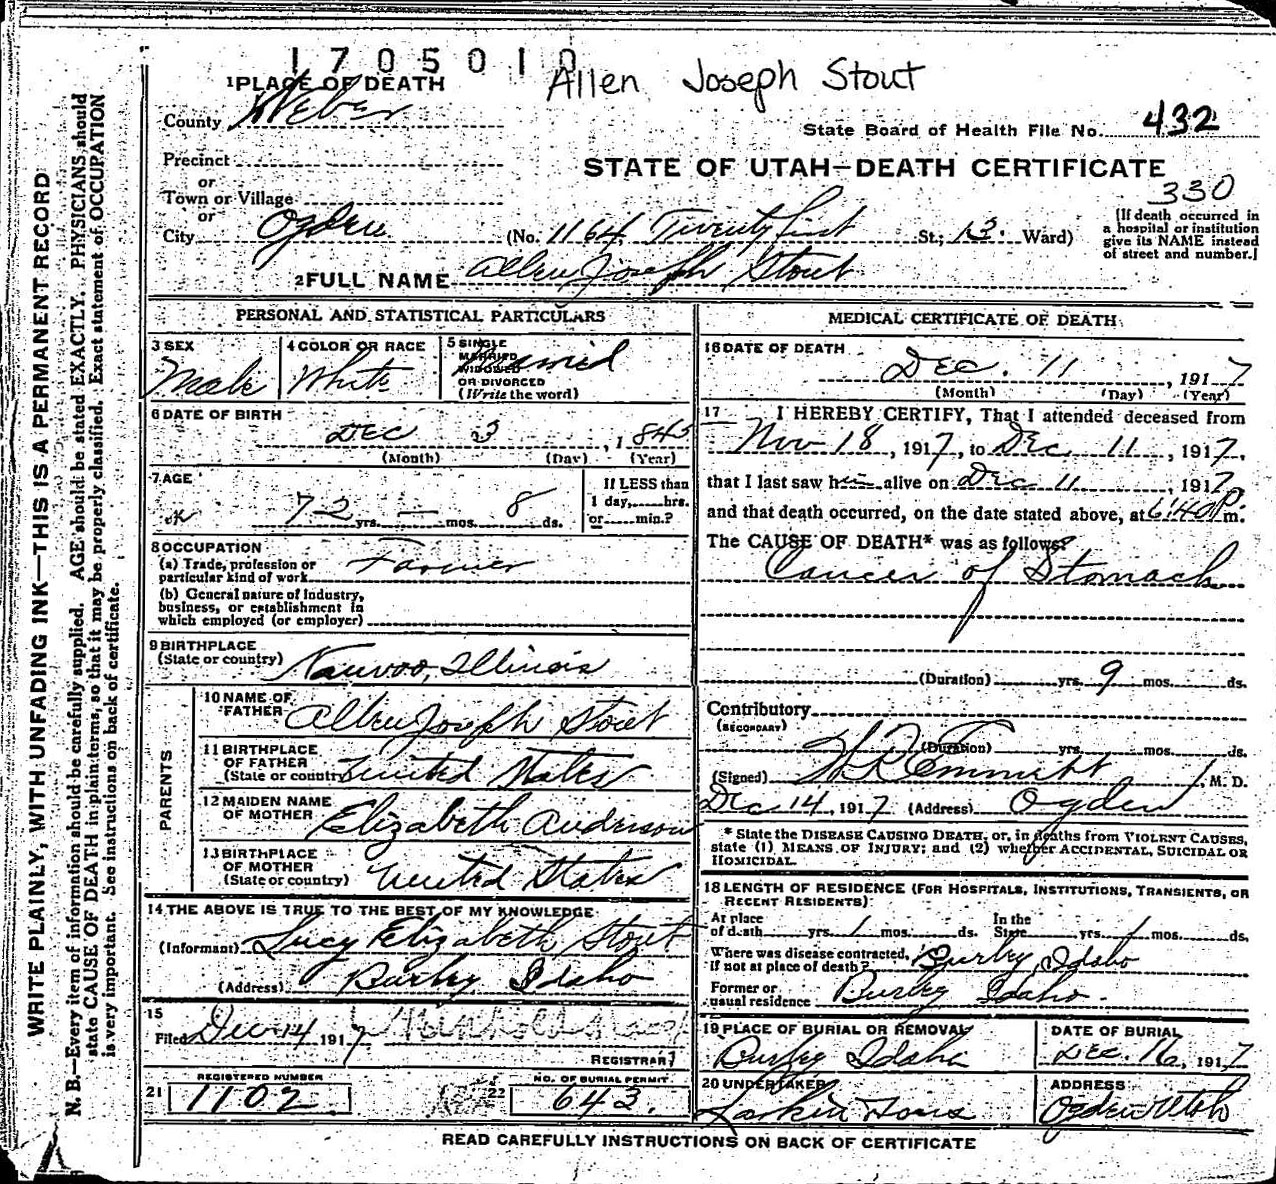 1705010
Allen Joseph Stout
1 PLACE OF DEATH
County Weber
State Board of Health File No. 432
Precinct
STATE OF UTAH—DEATH CERTIFICATE
or
Town or Village
330
or
City Ogden (No. 1164 Twenty first St.; 13. Ward)
[If death occurred in
a hospital or institution
give its NAME instead
of street and number.]
2 FULL NAME Allen Joseph Stout
PERSONAL AND STATISTICAL PARTICULARS
3 SEX
Male
4 COLOR OR RACE
White
5 SINGLE
MARRIED
WIDOWED
OR DIVORCED
(Write the word)
Married
6 DATE OF BIRTH
Dec 3, 1845
(Month) (Day) (Year)
7 AGE
72 yrs. — mos. 8 ds.
If LESS than
1 day,......hrs.
or......min.?
8 OCCUPATION
(a) Trade, profession or
particular kind of work Farmer
(b) General nature of Industry,
business, or establishment in
which employed (or employer)
9 BIRTHPLACE
(State or country) Nauvoo, Illinois
PARENTS
10 NAME OF
FATHER Allen Joseph Stout
11 BIRTHPLACE
OF FATHER
(State or country) United States
12 MAIDEN NAME
OF MOTHER Elizabeth Anderson
13 BIRTHPLACE
OF MOTHER
(State or country) United States
14 THE ABOVE IS TRUE TO THE BEST OF MY KNOWLEDGE
(Informant) Lucy Elizabeth Stout
(Address) Burley Idaho
15
Filed Dec 14 1917
REGISTRAR
REGISTERED NUMBER
21 1102
NO. OF BURIAL PERMIT
22 643.
MEDICAL CERTIFICATE OF DEATH
16 DATE OF DEATH
Dec. 11, 1917
(Month) (Day) (Year)
17 I HEREBY CERTIFY, That I attended deceased from
Nov 18, 1917, to Dec 11, 1917,
that I last saw him alive on Dec 11, 1917,
and that death occurred, on the date stated above, at 6:40 P. m.
The CAUSE OF DEATH* was as follows:
Cancer of Stomach
(Duration) yrs. 9 mos. ds.
Contributory
(SECONDARY)
(Duration) yrs. mos. ds.
(Signed) Emmett, M. D.
Dec 14, 1917 (Address) Ogden
* State the DISEASE CAUSING DEATH, or, in deaths from VIOLENT CAUSES,
state (1) MEANS OF INJURY; and (2) whether ACCIDENTAL, SUICIDAL OR
HOMICIDAL.
18 LENGTH OF RESIDENCE (FOR HOSPITALS, INSTITUTIONS, TRANSIENTS, OR
RECENT RESIDENTS):
At place
of death yrs. 1 mos. ds.
In the
State yrs. 1 mos. ds.
Where was disease contracted,
if not at place of death? Burley, Idaho
Former or
usual residence Burley Idaho.
19 PLACE OF BURIAL OR REMOVAL
Burley Idaho
DATE OF BURIAL
Dec. 16, 1917
20 UNDERTAKER
Larkin Sons
ADDRESS
Ogden Utah
READ CAREFULLY INSTRUCTIONS ON BACK OF CERTIFICATE
WRITE PLAINLY, WITH UNFADING INK—THIS IS A PERMANENT RECORD
N. B.—Every item of information should be carefully supplied. AGE should be stated EXACTLY. PHYSICIANS should
state CAUSE OF DEATH in plain terms, so that it may be properly classified. Exact statement of OCCUPATION
is very important. See instructions on back of certificate.